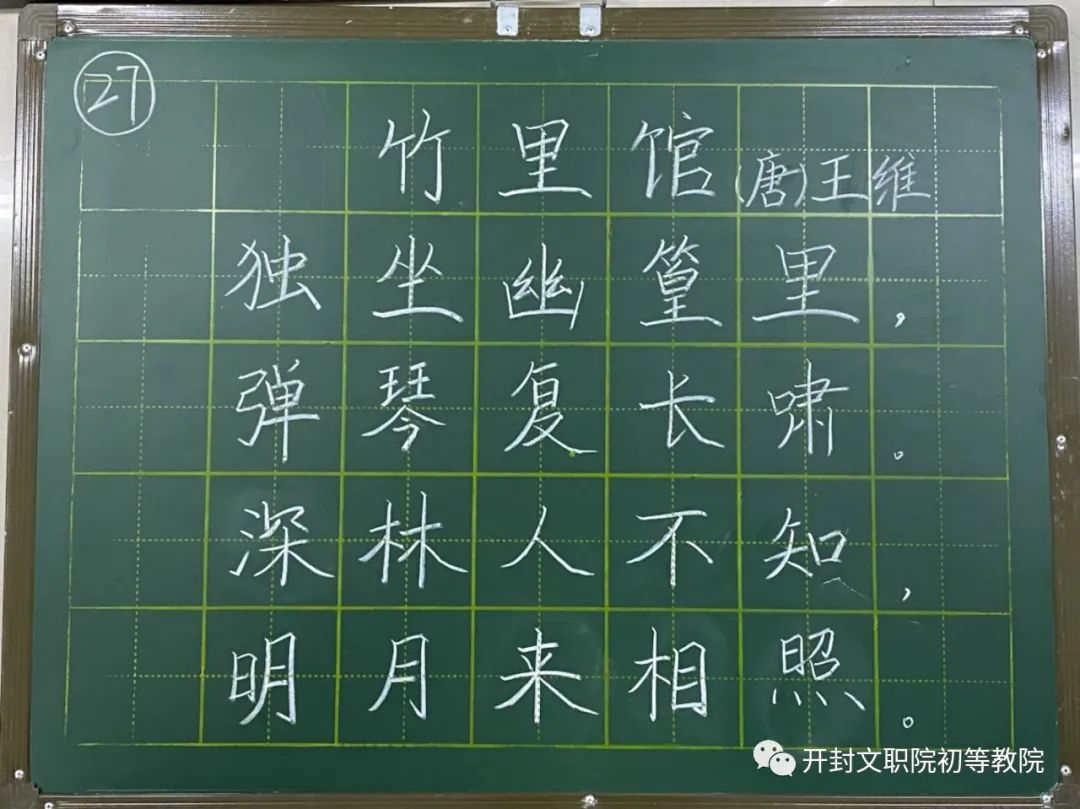 27
竹里馆(唐)王维
独坐幽篁里,
弹琴复长啸。
深林人不知,
明月来相照。
开封文职院初等教院